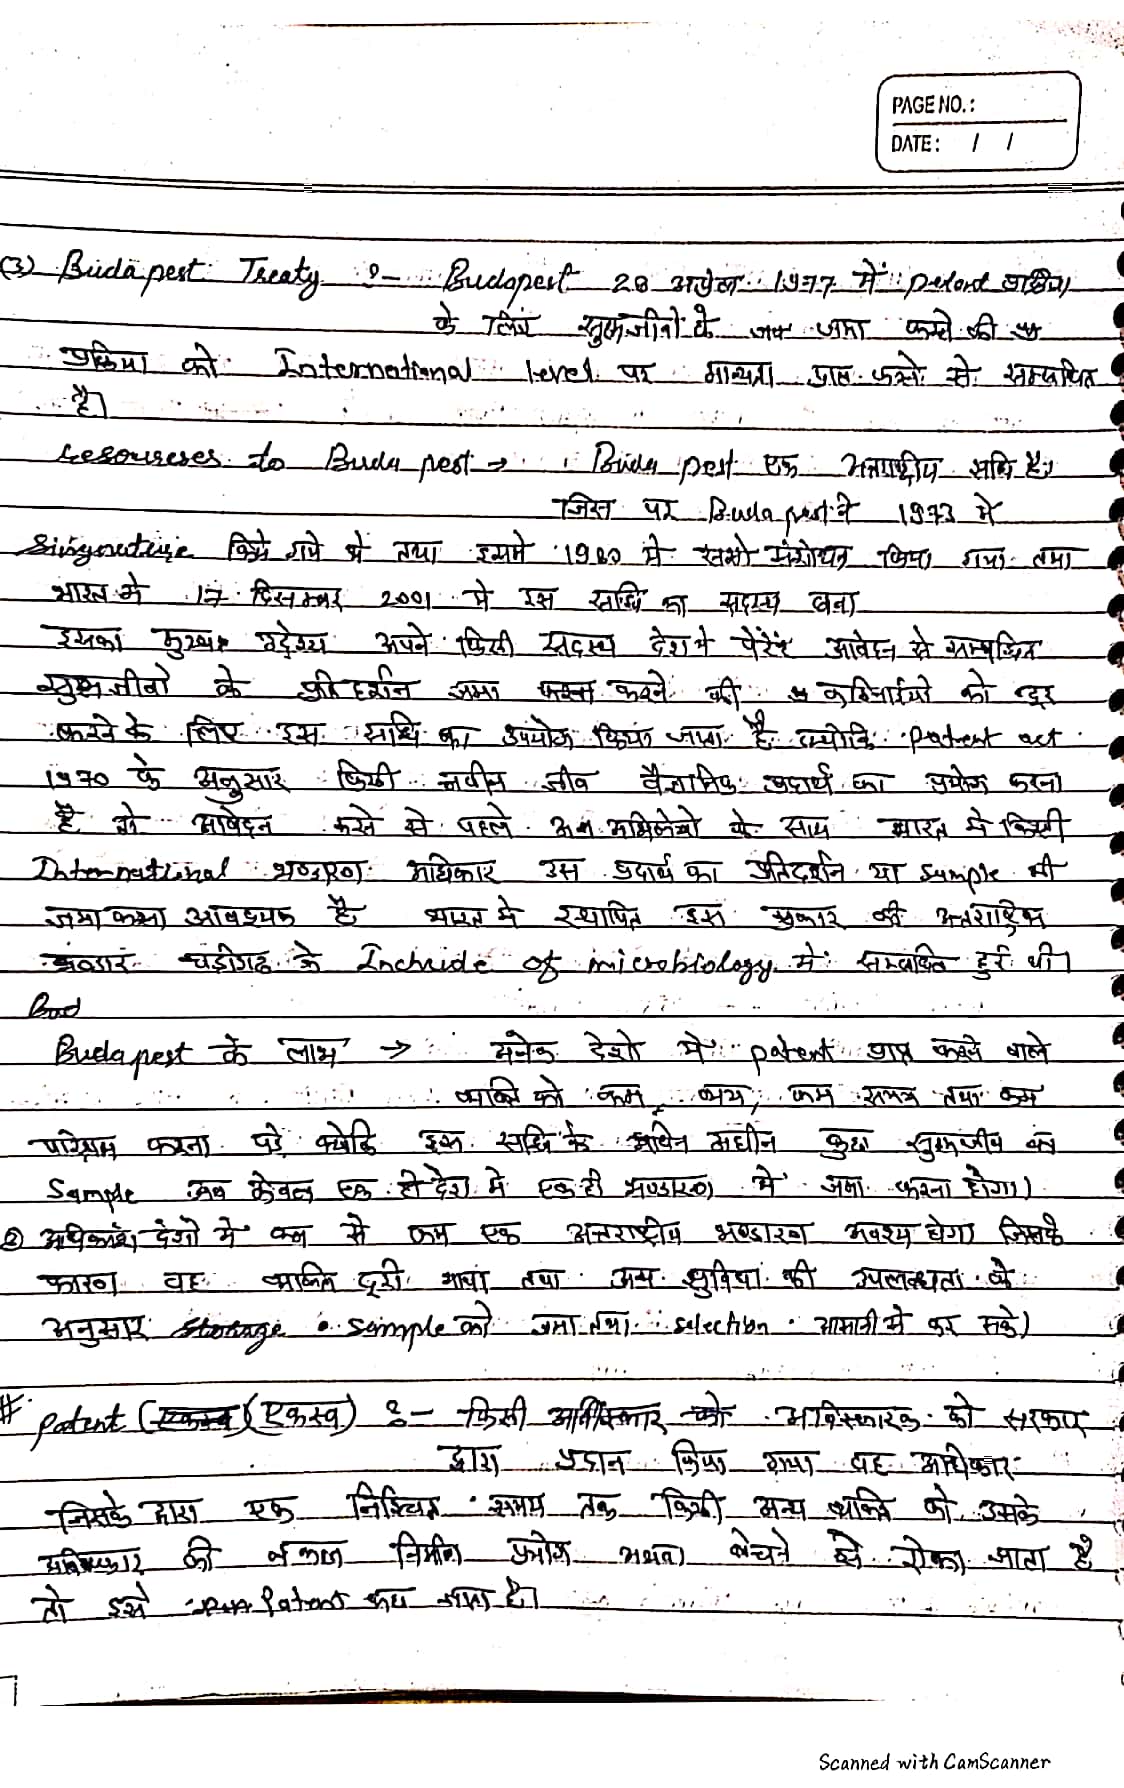 PAGE NO.:
DATE: / /
(3) Budapest Treaty :- Budapest 28 अप्रैल 1977 में patent
के लिए सुक्ष्मजीवों के जमा करने की
प्रक्रिया को International level पर मान्यता प्राप्त करने से सम्बन्धित
है।
to Budapest → Budapest एक अन्तराष्ट्रीय सन्धि है।
जिस पर Budapest ने 1973 मे
किये गये थे तथा इसमे 1980 मे संशोधन किया गया तथा
भारत मे 17 दिसम्बर 2001 मे इस सन्धि का सदस्य बना
इसका मुख्य उद्देश्य अपने किसी सदस्य देश मे आवेदन से सम्बन्धित
सुक्ष्मजीवो के प्रतिदर्शन जमा करने की कठिनाईयो को दूर
करने के लिए इस सन्धि का उपयोग किया जाता है क्योकि patent act
1970 के अनुसार किसी नवीन जीव वैज्ञानिक पदार्थ का प्रयोग करना
है तो आवेदन करने से पहले अन्य अभिलेखो के साथ भारत मे किसी
International भण्डारण अधिकार उस पदार्थ का प्रतिदर्शन या sample भी
जमा करना आवश्यक है भारत मे स्थापित इस प्रकार की अन्तराष्ट्रिय
भण्डार चडीगढ के of microbiology में सम्बन्धित हुई थी।
Bud
Budapest के लाभ → अनेक देशो मे patent प्राप्त करने वाले
व्यक्ति को कम व्यय, कम समय तथा कम
परिश्रम करना पड़े क्योकि इस सन्धि के अधीन कुछ सुक्ष्मजीव का
Sample अब केवल एक ही देश मे एक ही भण्डारण में जमा करना होगा।
② अधिकांश देशो मे कम से कम एक अन्तराष्ट्रीय भण्डारण अवश्य होगा जिसके
कारण वह व्यक्ति दूरी भाषा तथा अन्य सुविधा की उपलब्धता के
अनुसार storage sample को जमा तथा selection आसानी से कर सके।
# patent (एकस्व) :- किसी आविष्कार को आविस्कारक को सरकार
द्वारा प्रदान किया गया वह अधिकार
जिसके द्वारा एक निश्चित समय तक किसी अन्य व्यक्ति को उसके
आविष्कार की नकल निर्माण प्रयोग अथवा बेचने से रोका जाता है
तो इसे Patent कहा जाता है।
Scanned with CamScanner